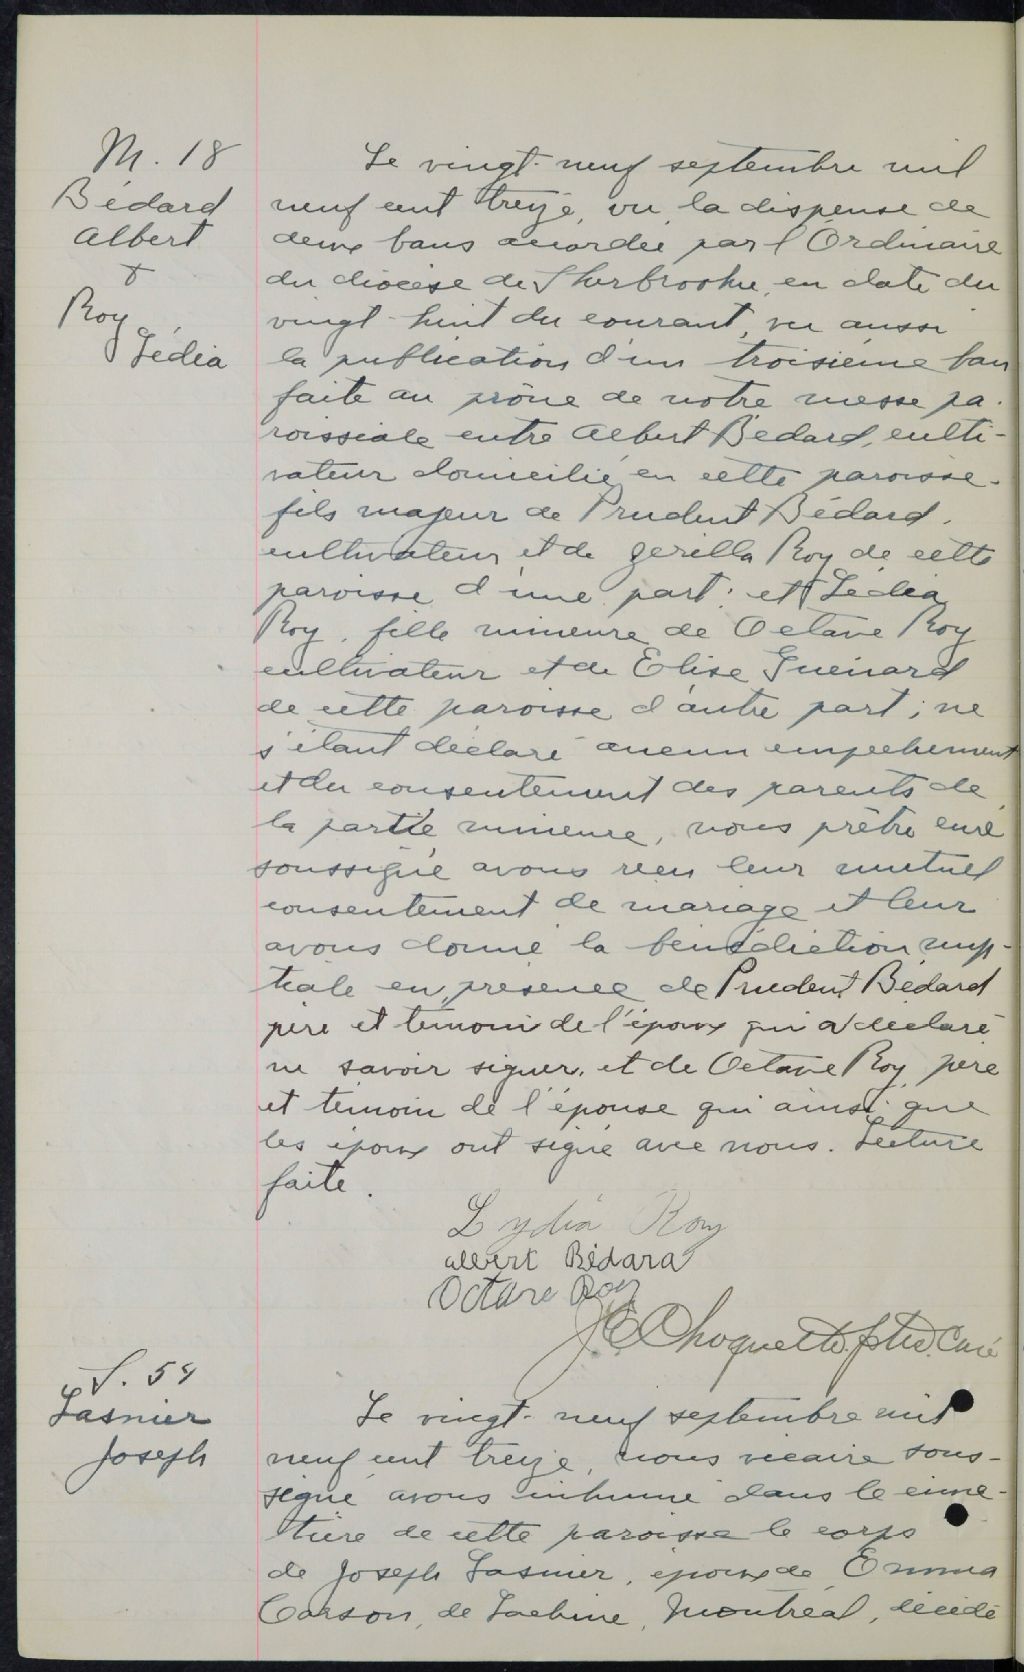 M. 18
Bédard
Albert
&
Roy
Lédia
Le vingt-neuf septembre mil
neuf cent treize, vu la dispense de
deux bans accordée par l'Ordinaire
du diocèse de Sherbrooke, en date du
vingt-huit du courant, vu aussi
la publication d'un troisième ban
faite au prône de notre messe pa-
roissiale entre Albert Bédard, culti-
vateur domicilié en cette paroisse-
fils majeur de Prudent Bédard,
cultivateur et de Zerilla Roy de cette
paroisse d'une part; et Lédia
Roy, fille mineure de Octave Roy
cultivateur et de Elise Guénard
de cette paroisse d'autre part; ne
s'étant déclaré aucun empêchement
et du consentement des parents de
la partie mineure, nous prêtre curé
soussigné avons reçu leur mutuel
consentement de mariage et leur
avons donné la bénédiction nup-
tiale en présence de Prudent Bédard
père et témoin de l'époux qui a déclaré
ne savoir signer, et de Octave Roy, père
et témoin de l'épouse qui ainsi que
les époux ont signé avec nous. Lecture
faite.
Lydia Roy
Albert Bédard
Octave Roy
J.E. Choquette. ptre. Curé
S. 54
Lasnier
Joseph
Le vingt-neuf septembre mil
neuf cent treize, nous vicaire sous-
signé avons inhumé dans le cime-
tière de cette paroisse le corps
de Joseph Lasnier, époux de Emma
Carson, de Lachine, Montréal, décédé